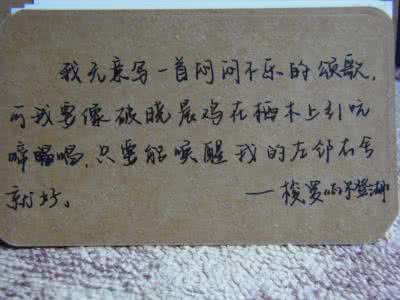 我无意写一首闷闷不乐的颂歌,
可我要像破晓晨鸡在栖木上引吭
啼唱,只要能唤醒我的左邻右舍
就好。
——梭罗《瓦尔登湖》